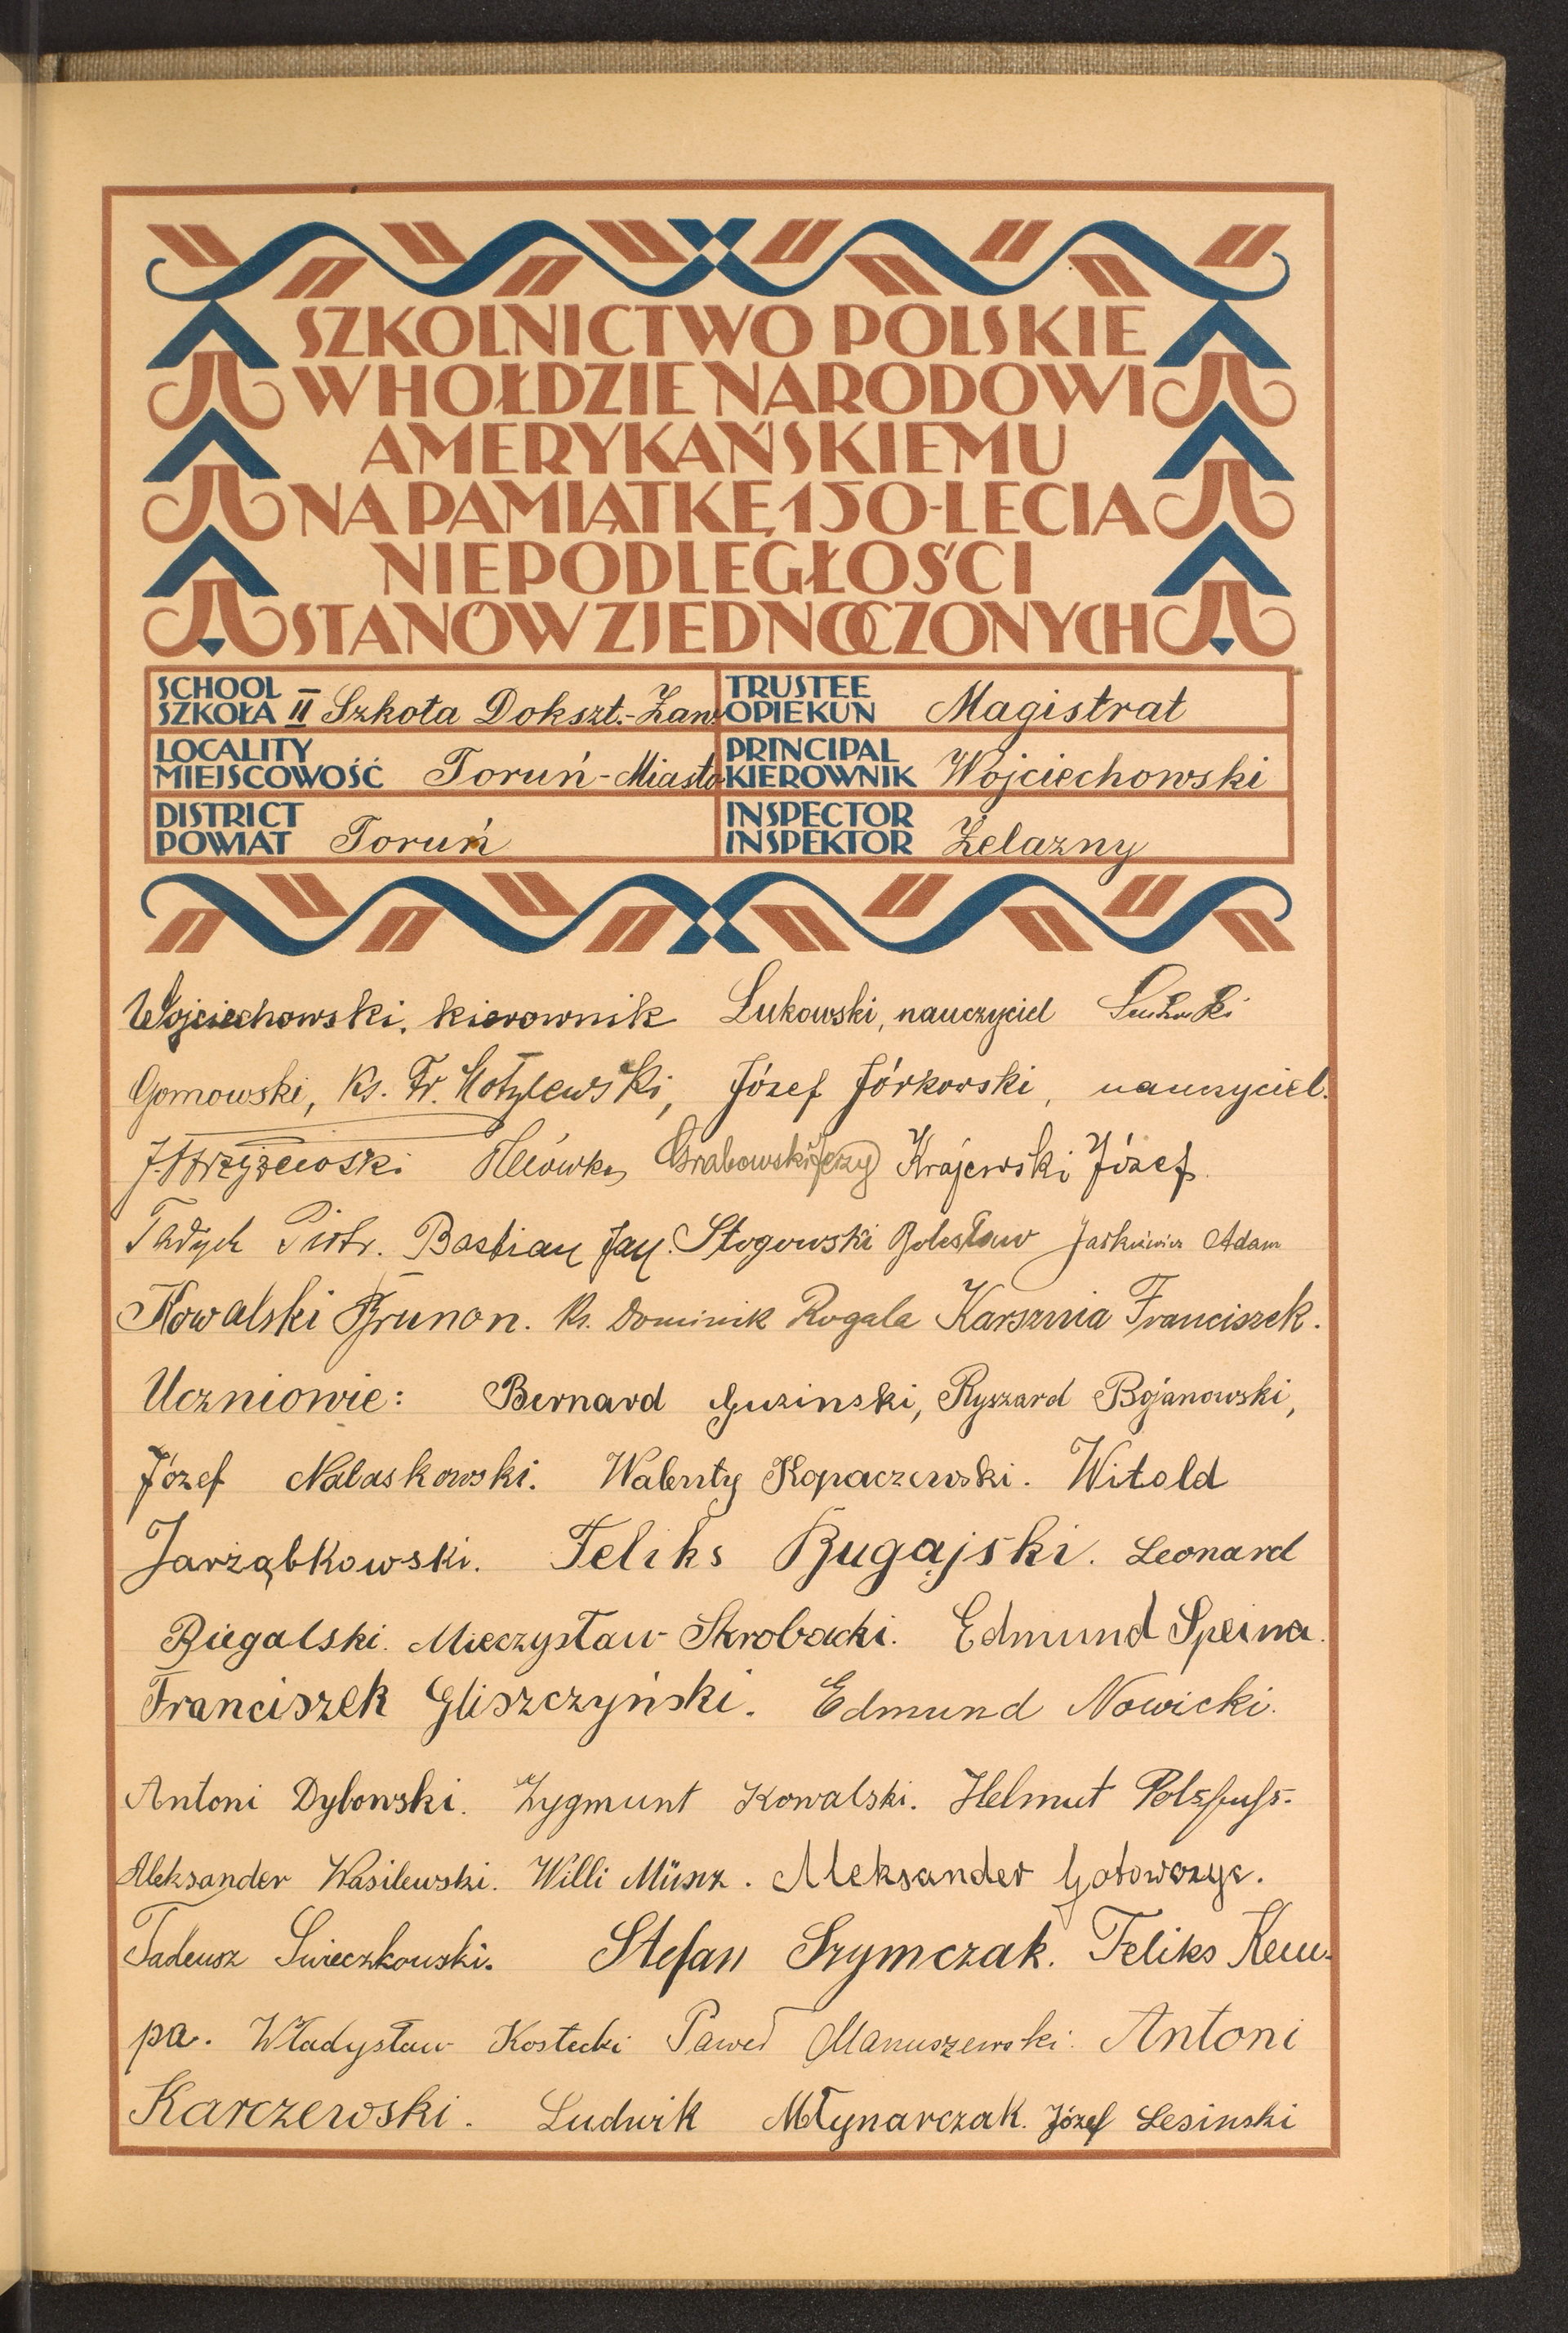 SZKOLNICTWO POLSKIE
W HOŁDZIE NARODOWI
AMERYKAŃSKIEMU
NA PAMIĄTKĘ 150-LECIA
NIEPODLEGŁOŚCI
STANÓW ZJEDNOCZONYCH
SCHOOL SZKOŁA II Szkoła Dokszt.-Zaw. TRUSTEE OPIEKUN Magistrat
LOCALITY MIEJSCOWOŚĆ Toruń-Miasto PRINCIPAL KIEROWNIK Wojciechowski
DISTRICT POWIAT Toruń INSPECTOR INSPEKTOR Żelazny
Wojciechowski, kierownik Lukowski, nauczyciel
Gomowski, Ks. Fr. Józef Jórkowski, nauczyciel.
Grabowski Jerzy Krajewski Józef.
Tadych Piotr. Bastian Jan. Stogowski Bolesław Jaśkiewicz Adam
Kowalski Brunon. Ks. Dominik Rogala Karsznia Franciszek.
Uczniowie: Bernard Guzinski, Ryszard Bojanowski,
Józef Nalaskowski. Walenty Kopaczewski. Witold
Jarząbkowski. Feliks Bugajski. Leonard
Biegalski. Mieczysław Skrobacki. Edmund Speina.
Franciszek Gliszczyński. Edmund Nowicki.
Antoni Dybowski. Zygmunt Kowalski. Helmut
Aleksander Wasilewski. Willi Münz. Aleksander Gotowczyc.
Tadeusz Świeczkowski. Stefan Szymczak. Feliks Kem-
pa. Władysław Kostecki Paweł Manuszewski. Antoni
Karczewski. Ludwik Młynarczak. Józef Lesinski